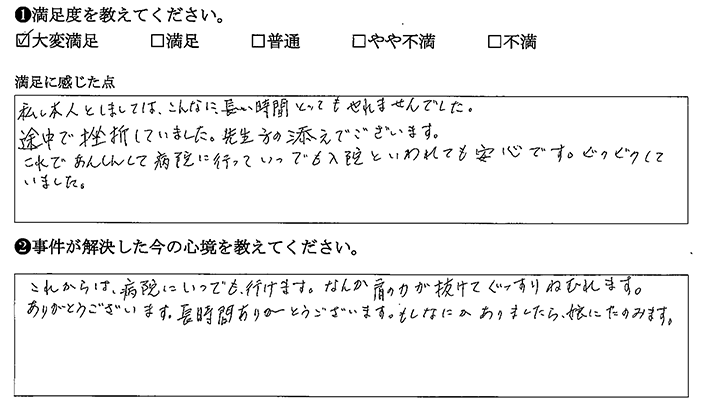 ❶満足度を教えてください。
☑大変満足 □満足 □普通 □やや不満 □不満
満足に感じた点
私し本人としましては、こんなに長い時間とってもやれませんでした。
途中で挫折していました。先生方の添えでございます。
これであんしんして病院に行っていつでも入院といわれても安心です。ビクビクして
いました。
❷事件が解決した今の心境を教えてください。
これからは、病院にいつでも、行けます。なんか肩の力が抜けてぐっすりねむれます。
ありがとうございます。長時間ありがとうございます。もしなにかありましたら、娘にたのみます。